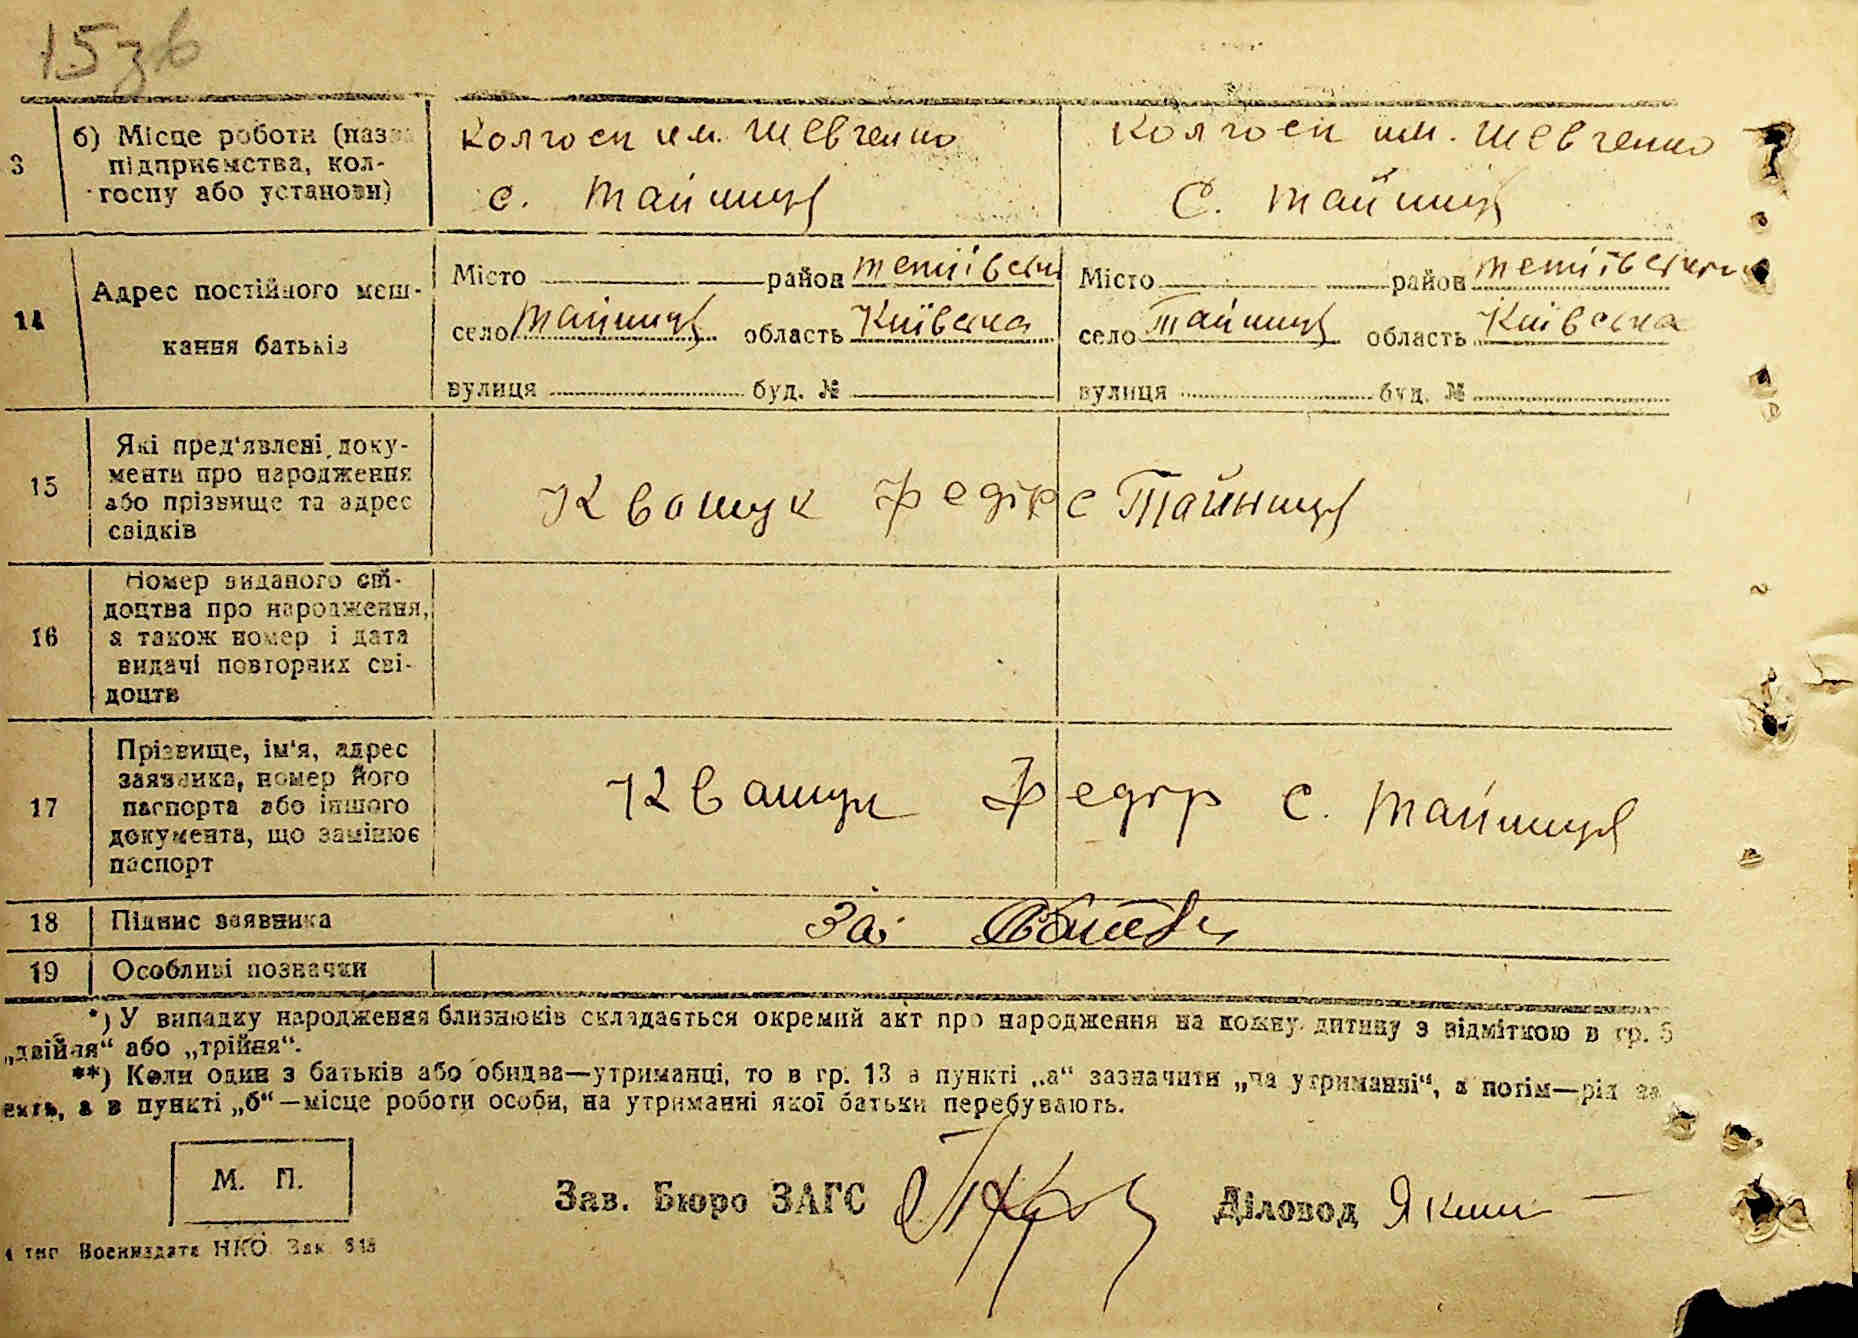 15зв
3
б) Місце роботи (назва
підприємства, кол-
госпу або установи)
Колгосп им. Шевченко
с. Тайниця
Колгосп им. Шевченко
С. Тайниця
14
Адрес постійного меш-
кання батьків
Місто район тетіївськ
село Тайниця область Київська
вулиця буд. №
Місто район тетіївськи
село Тайниця область Київська
вулиця буд. №
15
Які пред'явлені доку-
менти про народження
або прізвище та адрес
свідків
Квашук Федір с Тайниця
16
Номер виданого сві-
доцтва про народження,
а також номер і дата
видачі повторних сві-
доцтв
17
Прізвище, ім'я, адрес
заявника, номер його
паспорта або іншого
документа, що замінює
паспорт
Квашук Федір с. Тайниця
18 Підпис заявника За
19 Особливі позначки
*) У випадку народження близнюків складається окремий акт про народження на кожну дитину з відміткою в гр. 5
„двійня“ або „трійня“.
**) Коли один з батьків або обидва—утриманці, то в гр. 13 в пункті „а“ зазначити „на утриманні“, а потім—рід за-
нять, а в пункті „б“—місце роботи особи, на утриманні якої батьки перебувають.
М. П.
Зав. Бюро ЗАГС
Діловод
тип Воениздата НКО Зак.